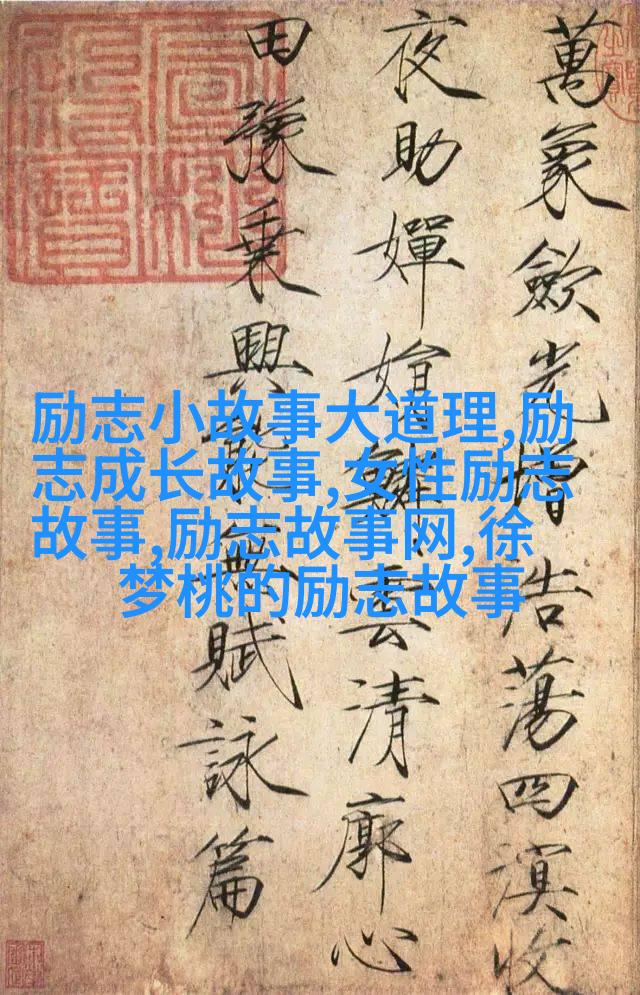 萬象歛光增浩蕩四溟收
夜助嬋娟鱗雲清廓心
田豫乗興能無賦詠篇
励志小故事大道理,励
志成长故事,女性励志
故事,励志故事网,徐
梦桃的励志故事